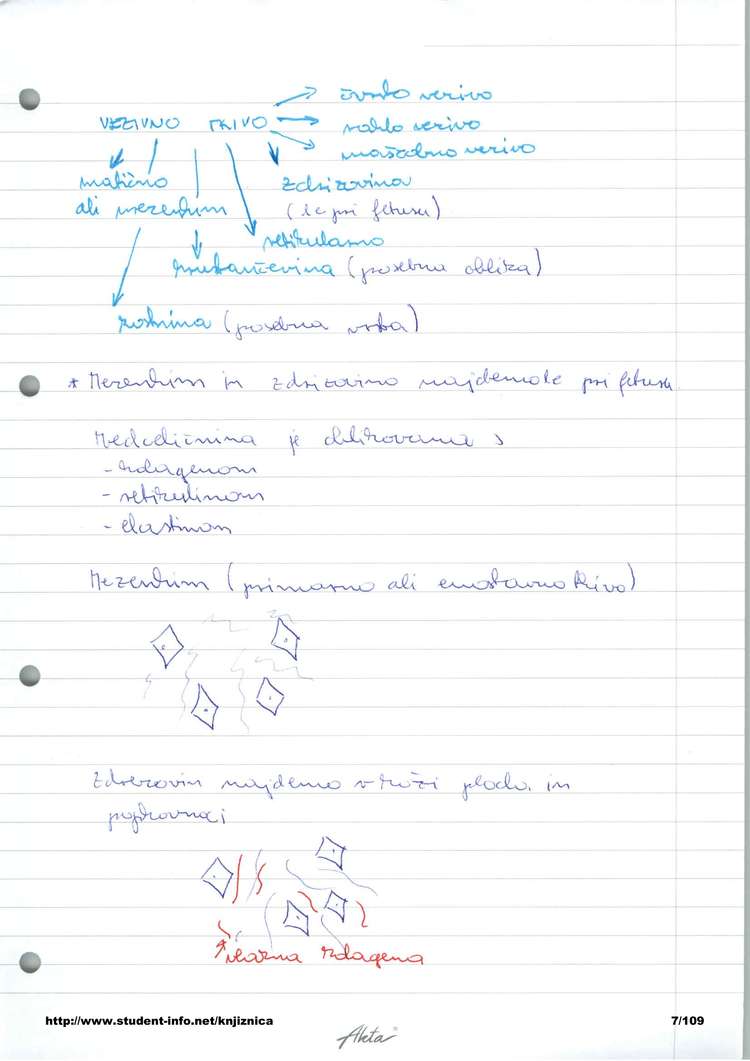 čvrsto vezivo
VEZIVNO TKIVO
rahlo vezivo
maščobno vezivo
matično
zdrizovina
ali mezenhim
(le pri fetusu)
retikularno
hrustančevina (posebna oblika)
kostnina (posebna vrsta)
* Mezenhim in zdrizovino najdemo le pri fetusu
Medceličnina je oblikovana s
- kolagenom
- retikulinom
- elastinom
Mezenhim (primarno ali enostavno tkivo)
Zdrizovin najdemo v koži ploda in
popkovnaci
vlakna kolagena
http://www.student-info.net/knjiznica
7/109
Aleta